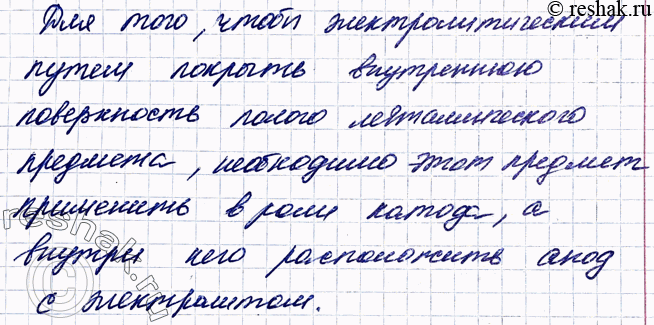 © reshak.ru
Для того, чтобы электролитическим
путем покрыть внутреннюю
поверхность полого металлического
предмета, необходимо этот предмет
применить в роли катода, а
внутри него расположить анод
с электролитом.
reshak.ru